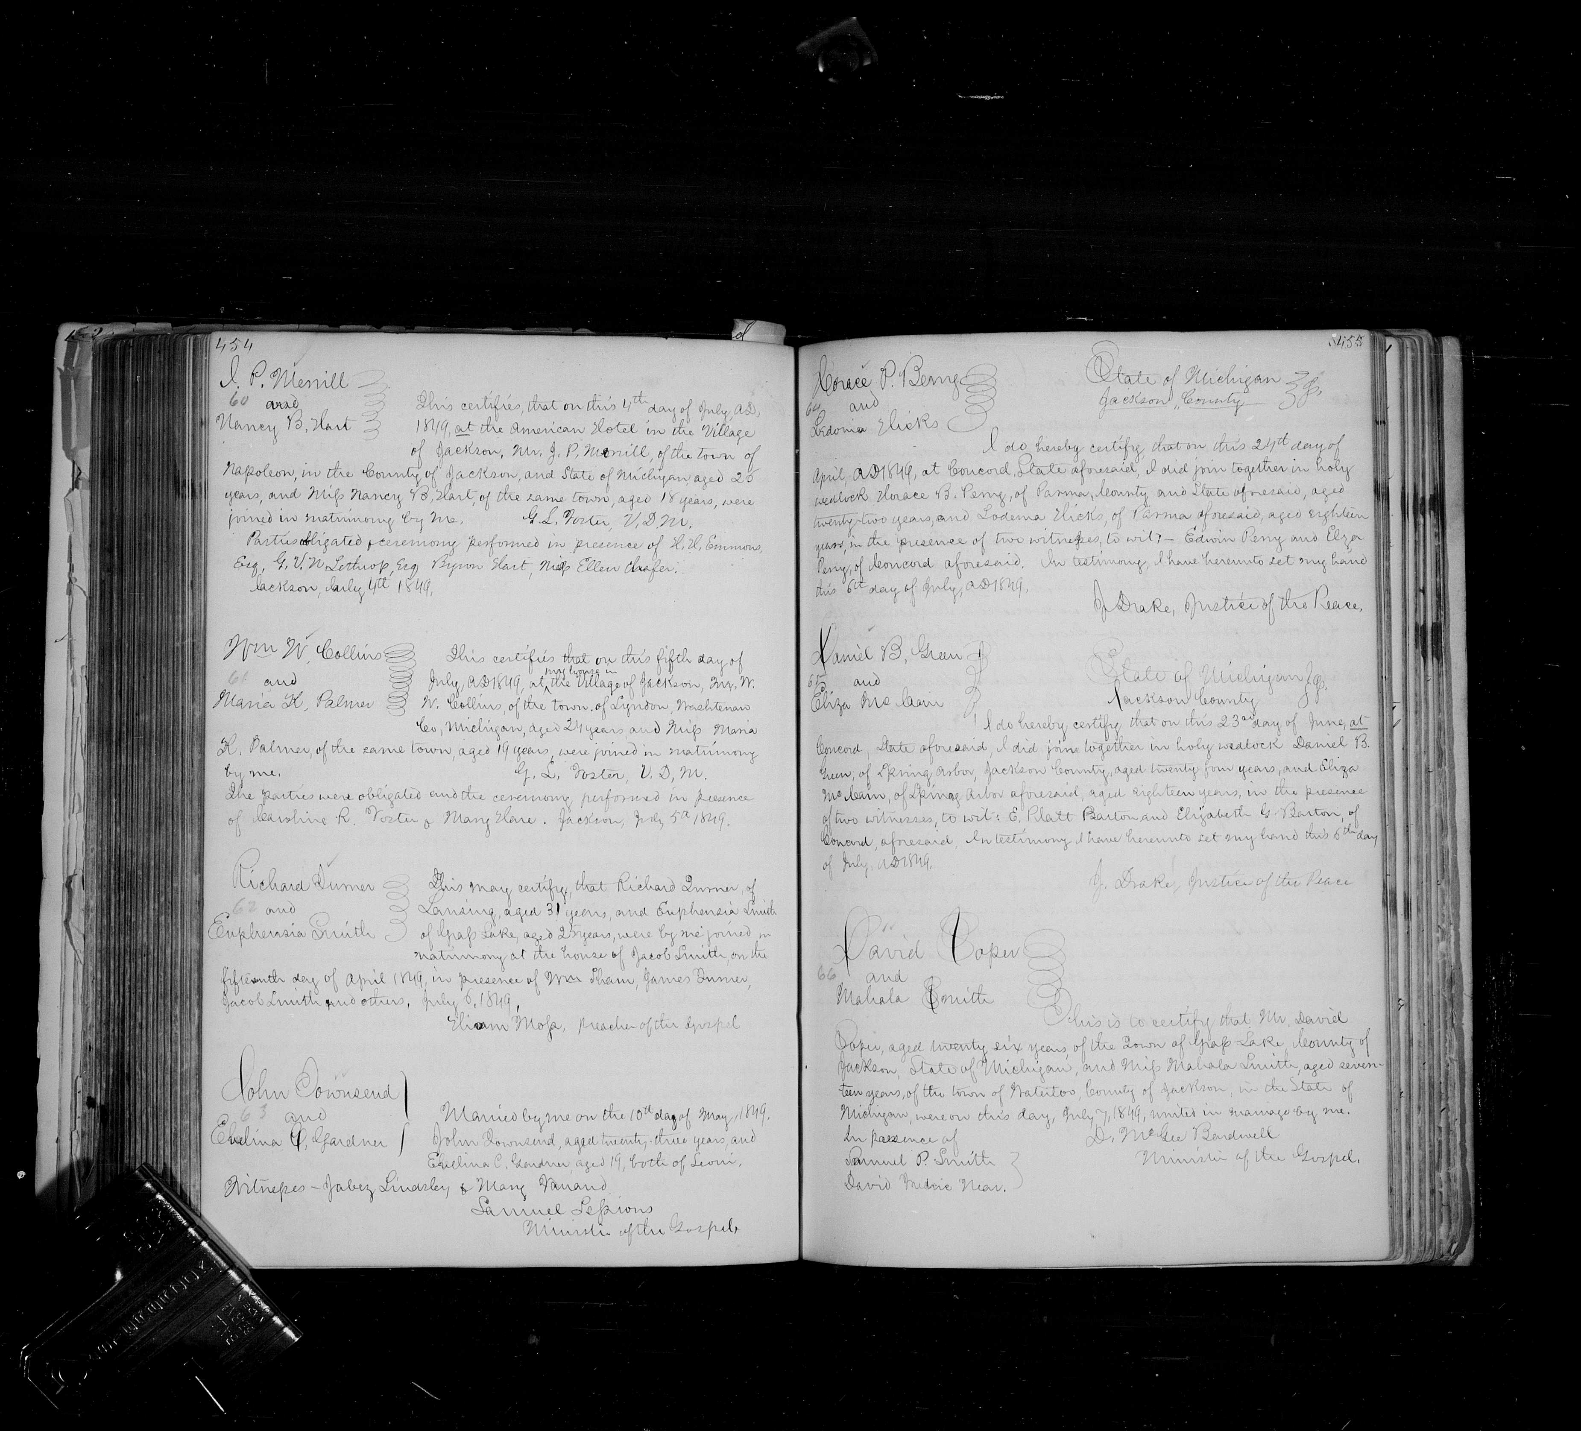 454
J. P. Merrill
60 and
Nancy B. Hart
This certifies, that on this 4th day of July, A.D.
1849, at the American Hotel in the Village
of Jackson, Mr. J. P. Merrill, of the town of
Napoleon, in the County of Jackson, and State of Michigan, aged 25
years, and Miss Nancy B. Hart, of the same town, aged 18 years, were
joined in matrimony by me. G. L. Foster, V. D. M.
Parties obligated & ceremony performed in presence of H. H. Emmons,
Esq, G. V. N. Lothrop, Esq Byron Hart, Miss Ellen
Jackson, July 4th 1849,
Wm W. Collins
61 and
Maria H. Palmer
This certifies that on this fifth day of
July, AD 1849, at my house in the Village of Jackson, Mr. W.
W. Collins, of the town of Lyndon, Washtenaw
Co, Michigan, aged 24 years and Miss Maria
H. Palmer, of the same town, aged 19 years, were joined in matrimony
by me. G. L. Foster, V. D. M.
The parties were obligated and the ceremony performed in presence
of Caroline R. Foster & Mary Hare. Jackson, July 5th 1849.
Richard Turner
62 and
Euphemia Smith
This may certify, that Richard Turner, of
Lansing, aged 31 years, and Euphemia Smith
of Grass Lake, aged 25 years, were by me joined in
matrimony at the house of Jacob Smith on the
fifteenth day of April 1849, in presence of Wm Tham, James Turner,
Jacob Smith and others. July 6, 1849,
Moss, Preacher of the Gospel
John Townsend
63 and
Evelina C. Gardner
Married by me on the 10th day of May, 1849.
John Townsend, aged twenty-three years, and
Evelina C. Gardner, aged 19, both of Leoni.
Witnesses – Jabez Lindsley & Mary
Samuel Sessions
Minister of the Gospel.
455
Horace P. Perry
64 and
Lodema Hicks
State of Michigan
Jackson County ss.
I do hereby certify that on this 24th day of
April, AD 1849, at Concord, State aforesaid, I did join together in holy
wedlock Horace B. Perry, of Parma, County and State aforesaid, aged
twenty-two years, and Lodema Hicks, of Parma aforesaid, aged eighteen
years, in the presence of two witnesses, to wit; – Edwin Perry and Eliza
Perry, of Concord aforesaid. In testimony, I have hereunto set my hand
this 6th day of July, AD 1849,
J. Drake, Justice of the Peace,
Daniel B. Green
65 and
Eliza McCain
State of Michigan ss.
Jackson County
I do hereby certify that on this 23rd day of June, at
Concord, State aforesaid, I did join together in holy wedlock Daniel B.
Green, of Spring Arbor, Jackson County, aged twenty four years, and Eliza
McCain, of Spring Arbor aforesaid, aged eighteen years, in the presence
of two witnesses, to wit: E. Platt Barton and Elizabeth G. Barton, of
Concord, aforesaid. In testimony I have hereunto set my hand this 6th day
of July, AD 1849.
J. Drake, Justice of the Peace
David Soper
66 and
Mahala Smith
This is to certify that Mr. David
Soper, aged twenty six years, of the Town of Grass Lake, County of
Jackson, State of Michigan, and Miss Mahala Smith, aged seven-
teen years, of the town of Waterloo, County of Jackson, in the State of
Michigan, were on this day, July 7, 1849, united in marriage by me.
In presence of D. McGee Bardwell
Samuel P. Smith Minister of the Gospel.
David